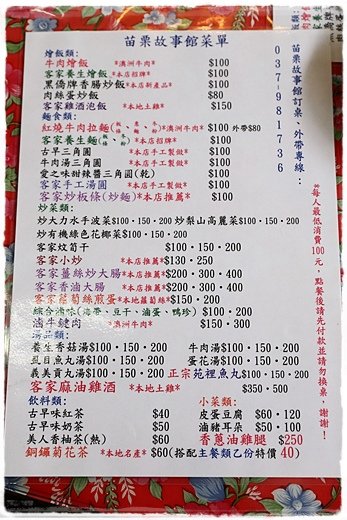 苗栗故事館菜單
燴飯類:
牛肉燴飯 *澳洲牛肉* $100
客家養生燴飯 *本店招牌* $100
黑僑牌香腸炒飯 *本店新產品* $100
肉絲蛋炒飯 $80
客家雞酒泡飯 *本地土雞* $150
麵食類:
紅燒牛肉拉麵 *澳洲牛肉* $100 外帶$80
客家養生麵 *本店招牌* $100
古早三角圓 *本店手工製做* $100
牛肉湯三角圓 *本店手工製做* $100
愛之味甜辣醬三角圓(乾) $100
客家手工湯圓 *本店手工製做* $100
客家炒粄條(炒麵) *本店推薦* $100
炒菜類:
炒大力水手波菜$100·150·200 炒梨山高麗菜$100·150·200
炒有機綠色花椰菜$100·150·200
客家炆筍干 $100·150·200
客家小炒 *本店推薦*$130·250
客家薑絲炒大腸 *本店推薦*$200·300·400
客家香滷大腸 *本店推薦*$200·300·400
客家蘿蔔絲煎蛋*本地蘿蔔絲*$150·200
綜合滷味(海帶、豆干、滷蛋、鴨珍) $100·200
滷牛腱肉 *澳洲牛肉* $150·300
湯品類:
養生香菇湯$100·150·200 牛肉湯$100·150·200
虱目魚丸湯$100·150·200 蛋花湯$100·150·200
義美貢丸湯$100·150·200 正宗苑裡魚丸$100·150·200
客家麻油雞酒 *本地土雞* $350·500
飲料類: 小菜類:
古早味紅茶 $40 皮蛋豆腐 $60·120
古早味奶茶 $50 滷豬耳朵 $50·100
美人香柚茶(熱) $60 香蔥油雞腿 $250
銅鑼菊花茶 *本地名產* $60(搭配主餐類乙份特價 40)
苗栗故事館訂桌、外帶專線:
037-981736
*每人最低消費100元,點餐後請先付款並請勿換桌,謝謝!